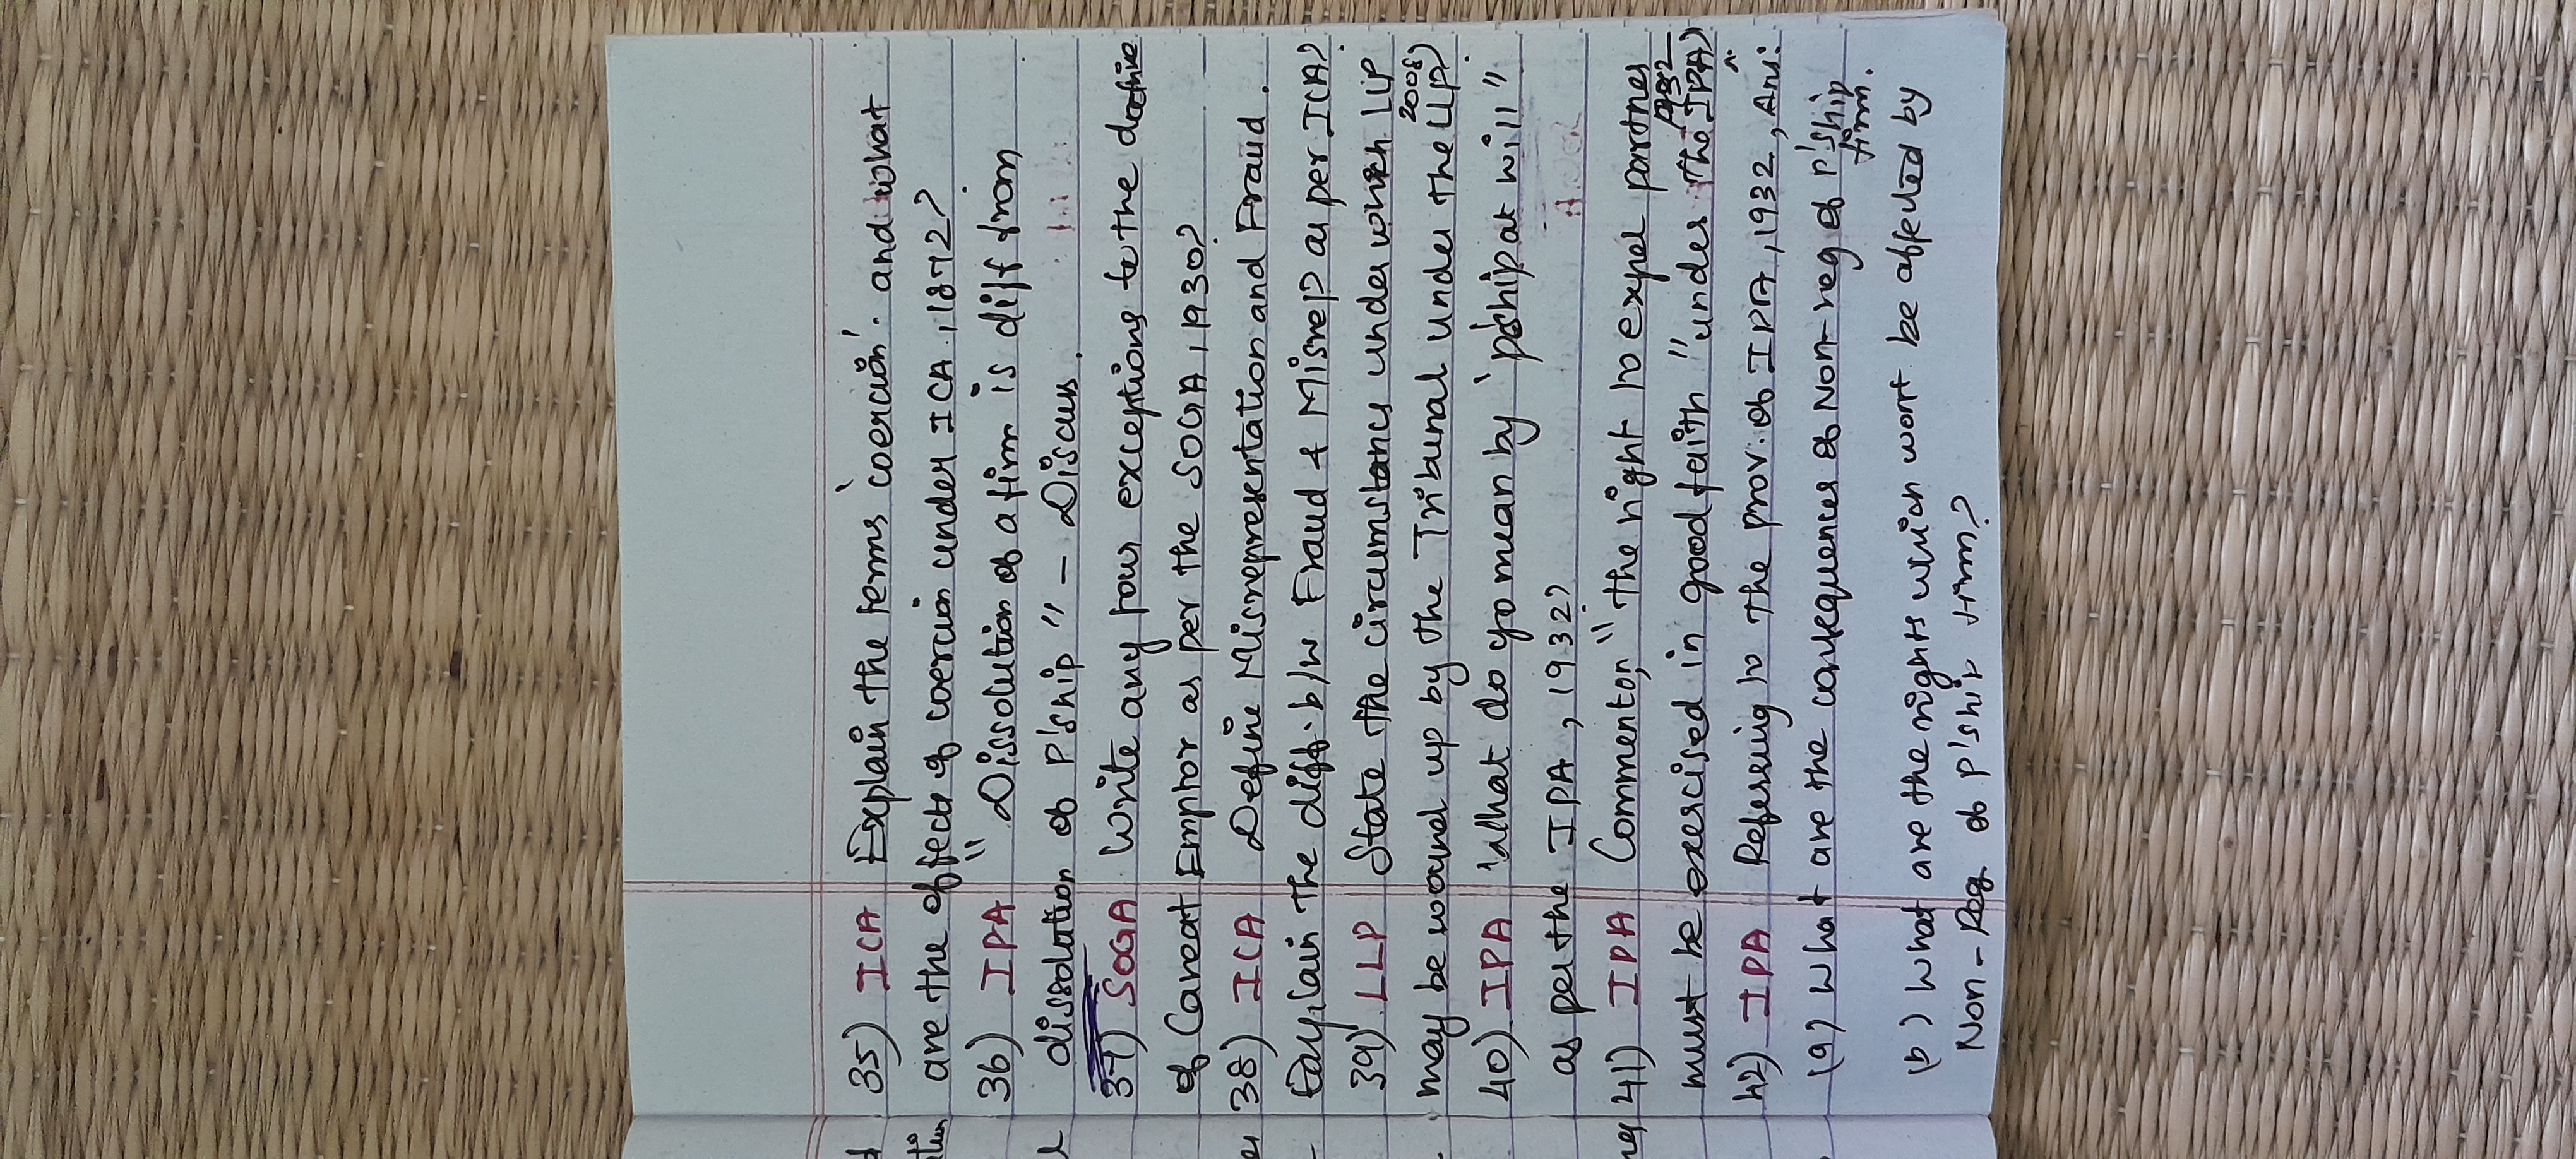 35) ICA Explain the terms 'coercion'. and what
are the effects of coercion under ICA, 1872?
36) IPA "Dissolution of a firm is diff from
dissolution of P'ship" - Discuss.
37) SOGA Write any four exceptions to the doctrine
of Caveat Emptor as per the SOGA, 1930?
38) ICA Define Misrepresentation and Fraud.
Explain the diff. b/w Fraud & Misrep as per ICA?
39) LLP State the circumstances under which LLP
may be wound up by the Tribunal under the LLPA, 2008?
40) IPA What do yo mean by 'p'ship at will"
as per the IPA, 1932?
41) IPA Comment on, "the right to expel partner
must be exercised in good faith" under the IPA, 1932?
42) IPA Referring to the prov. of IPA, 1932, Ans:
(a) What are the consequences of Non-reg of P'ship firm.
(b) What are the rights which wont be affected by
Non-Reg of P'ship firm?